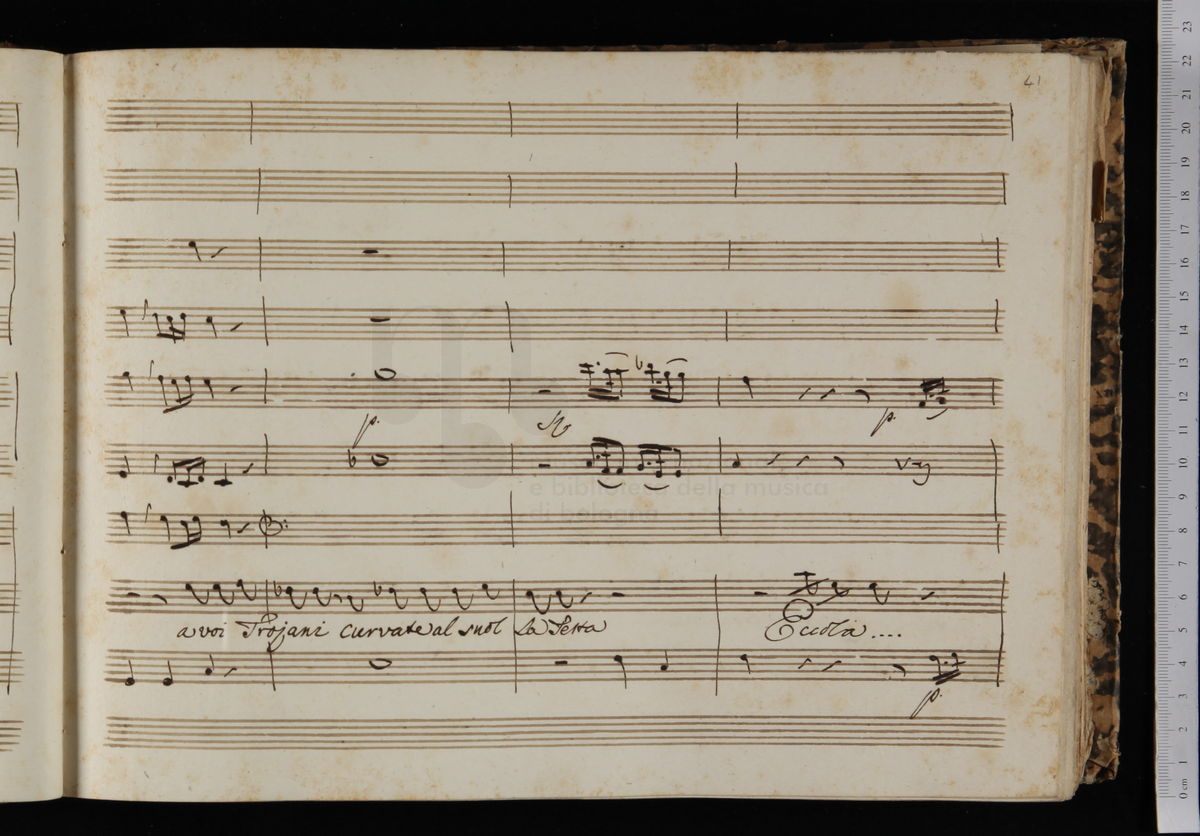 41
p.
p.
a voi Trojani curvate al suol la Testa Eccola ....
p.
e biblioteca della musica
di bologna
23
22
21
20
19
18
17
16
15
14
13
12
11
10
9
8
7
6
5
4
3
2
1
0 cm